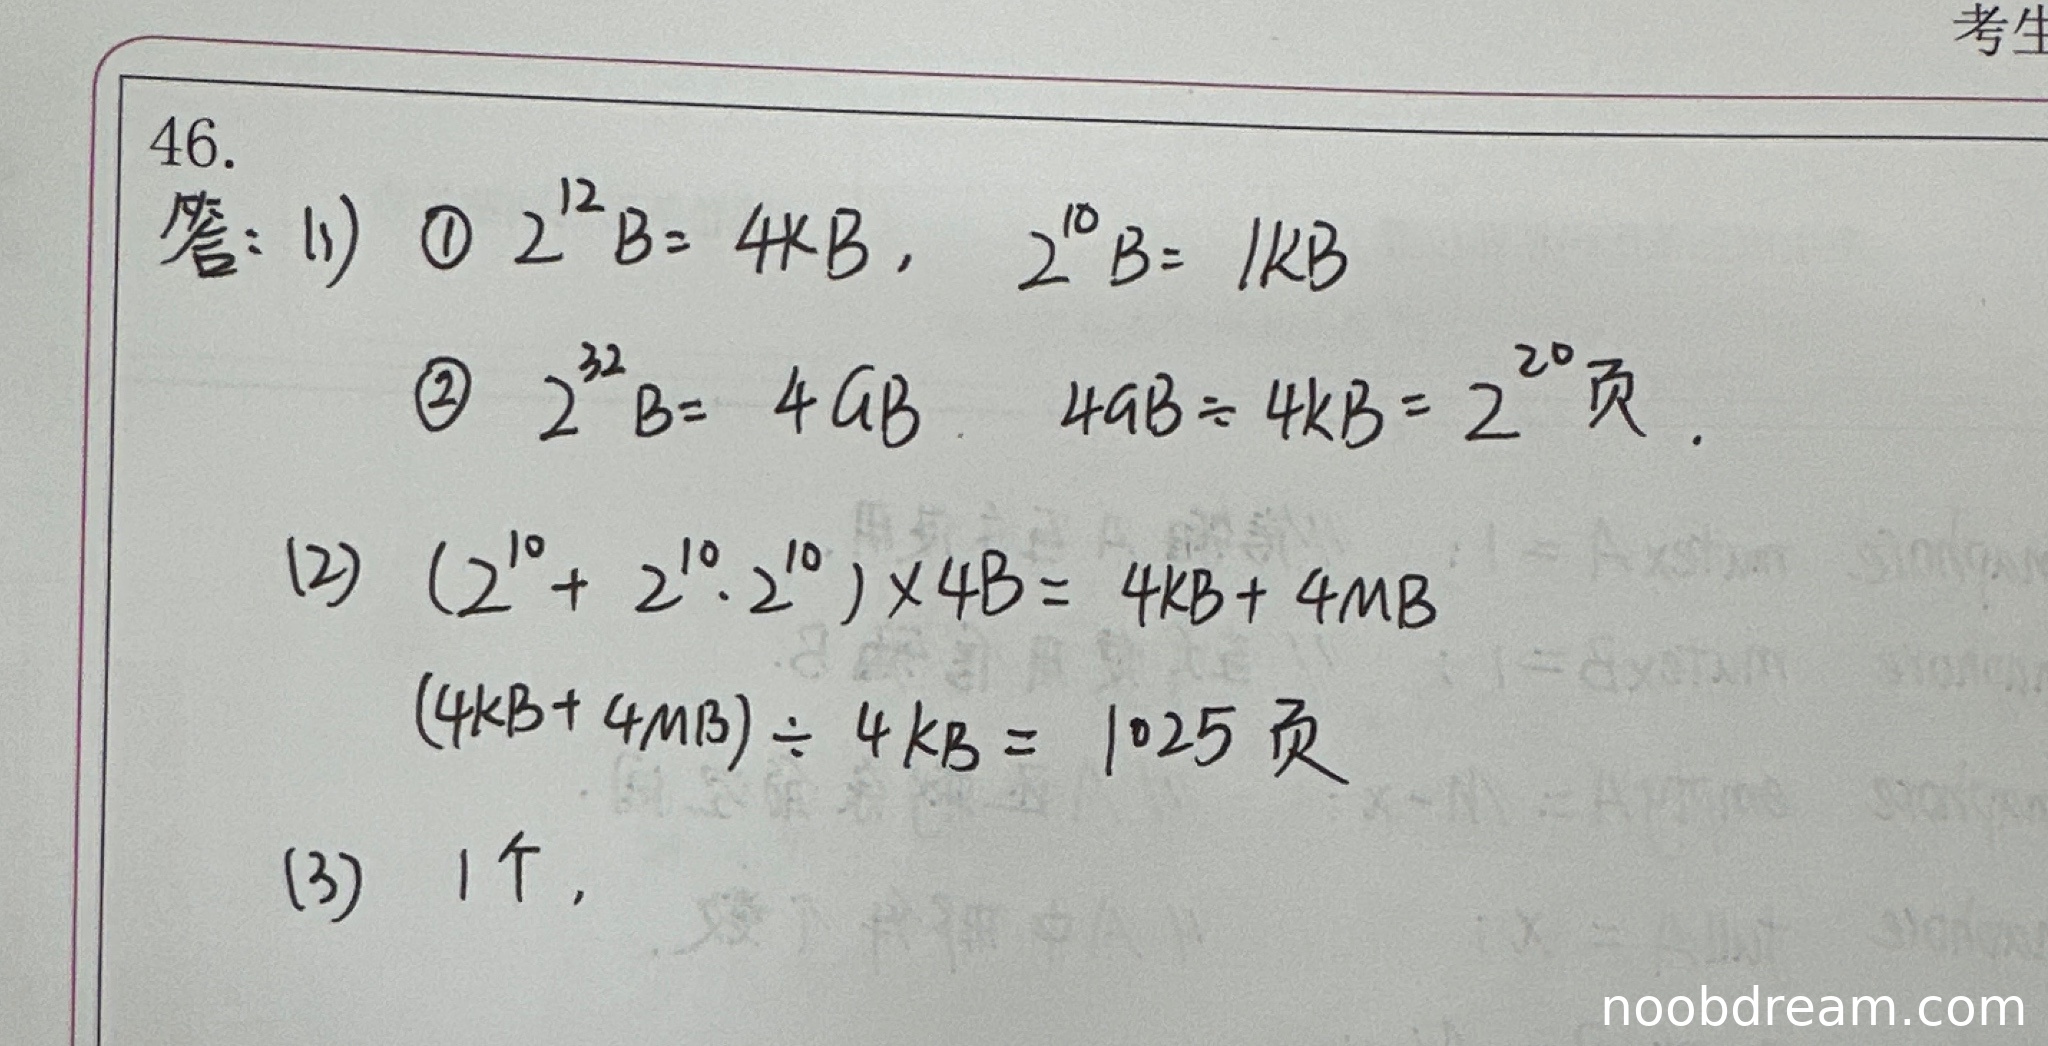 考生
46.
答: (1) ① 2^12 B = 4KB, 2^10 B = 1KB
② 2^32 B = 4GB. 4GB ÷ 4KB = 2^20 页.
(2) (2^10 + 2^10 · 2^10) × 4B = 4KB + 4MB
(4KB + 4MB) ÷ 4KB = 1025 页
(3) 1个,
noobdream.com